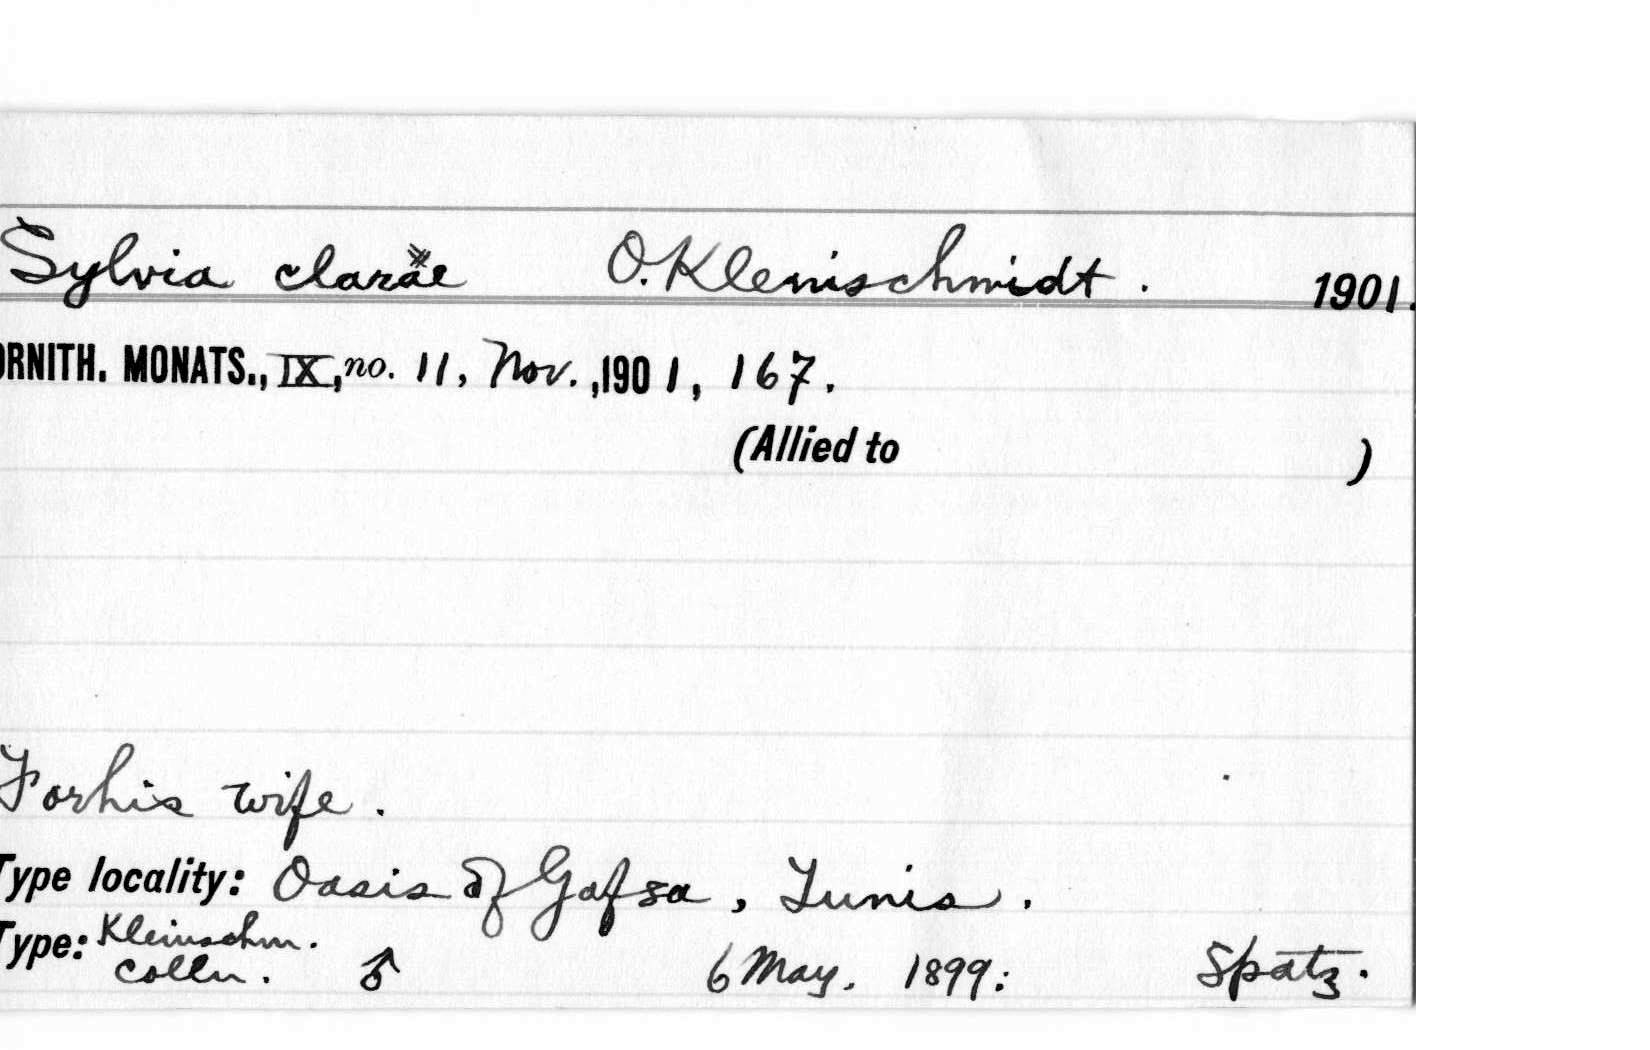 Sylvia clarae O. Kleinschmidt. 1901.
ORNITH. MONATS., IX, no. 11, Nov., 1901, 167.
(Allied to )
For his wife.
Type locality: Oasis of Gafsa, Tunis.
Type: Kleinschm.
Colln. ♂ 6 May. 1899: Spatz.